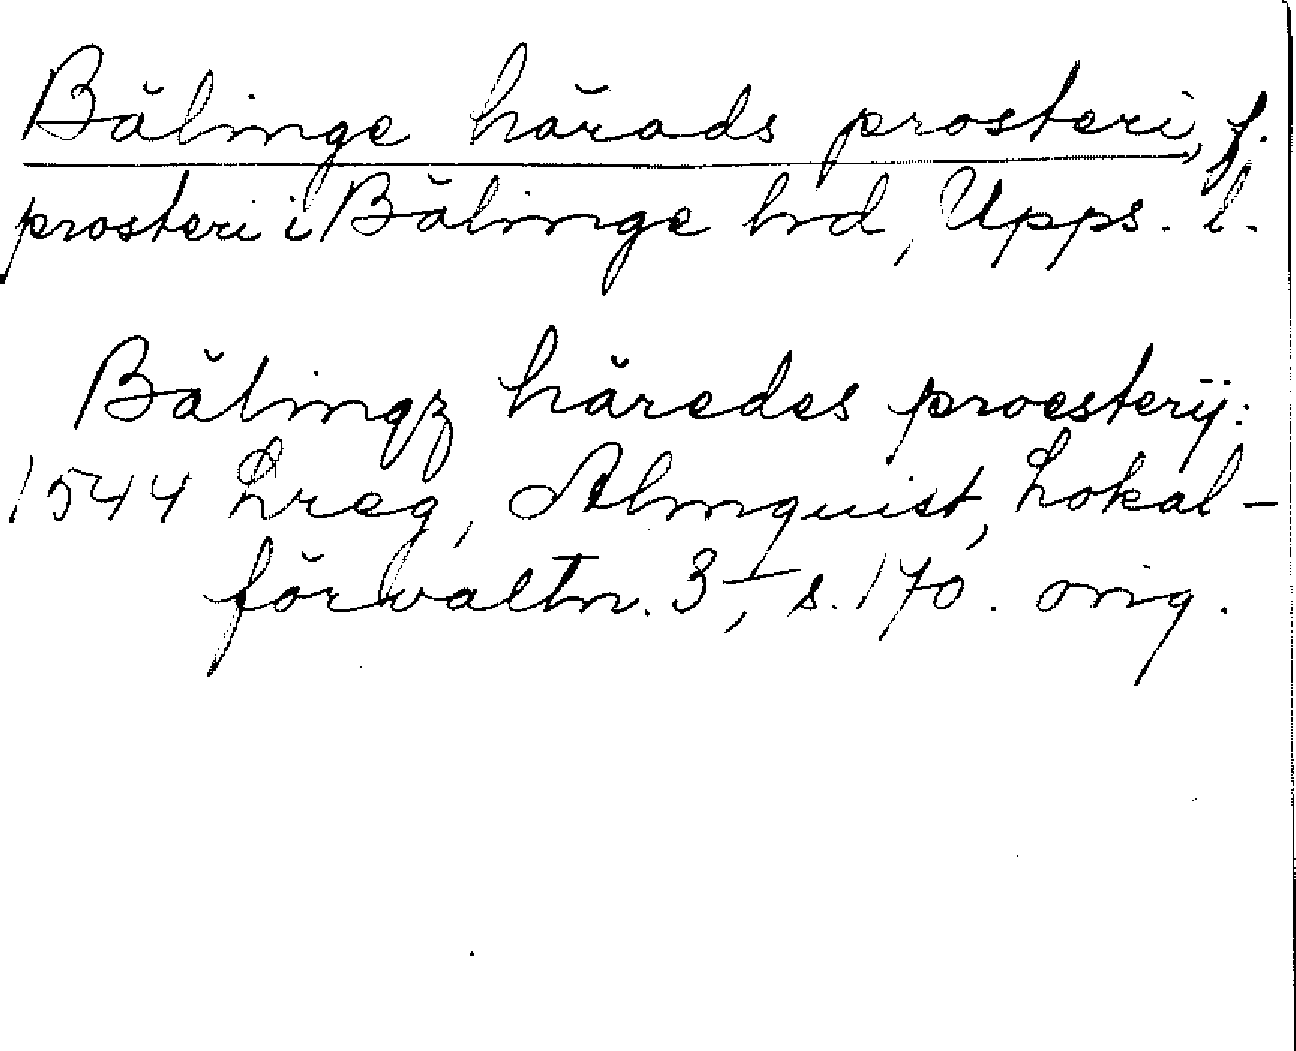 Bälinge härads prosteri, f.
prosteri i Bälinge hrd, Upps. l.
Bälingz häredes proesterij:
1544 Lreg, Almquist, Lokal-
förvaltn. 3:I, s. 170. orig.